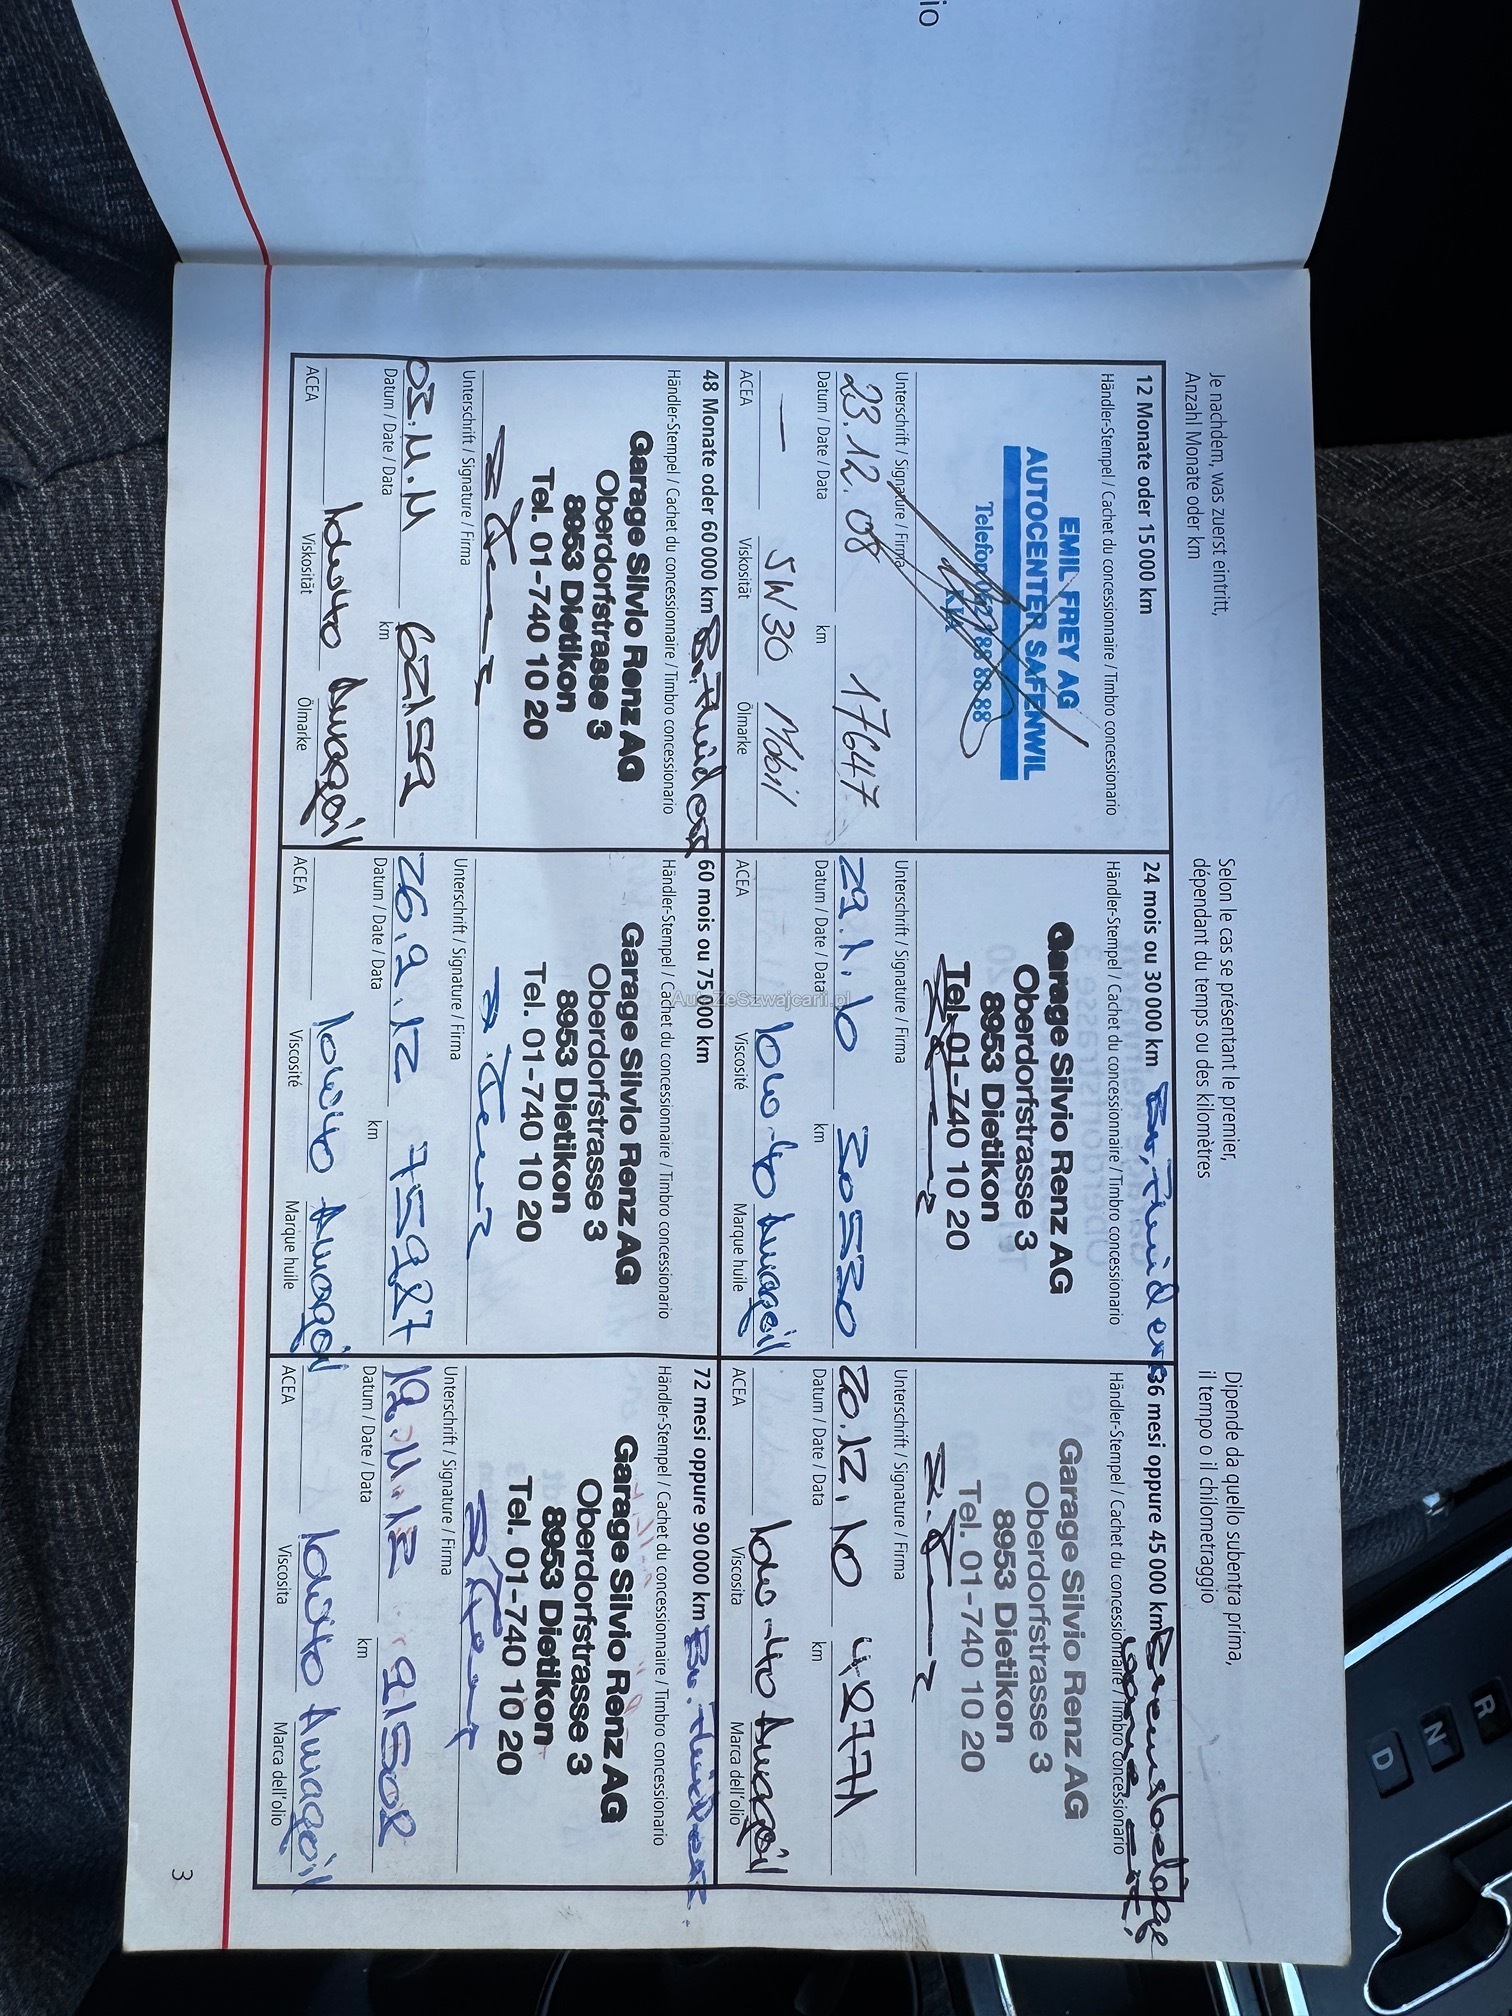 io
Je nachdem, was zuerst eintritt,
Anzahl Monate oder km
Selon le cas se présentant le premier,
dépendant du temps ou des kilomètres
Dipende da quello subentra prima,
il tempo o il chilometraggio
12 Monate oder 15 000 km
Händler-Stempel / Cachet du concessionnaire / Timbro concessionario
EMIL FREY AG
AUTOCENTER SAFENWIL
Telefon 062 788 88 88
Unterschrift / Signature / Firma
23.12.08 17647
Datum / Date / Data km
— 5W30 Mobil
ACEA Viskosität Ölmarke
24 mois ou 30 000 km
Händler-Stempel / Cachet du concessionnaire / Timbro concessionario
Garage Silvio Renz AG
Oberdorfstrasse 3
8953 Dietikon
Tel. 01-740 10 20
Unterschrift / Signature / Firma
29.1.10 30530
Datum / Date / Data km
10W-40
ACEA Viscosité Marque huile
36 mesi oppure 45 000 km
Händler-Stempel / Cachet du concessionnaire / Timbro concessionario
Garage Silvio Renz AG
Oberdorfstrasse 3
8953 Dietikon
Tel. 01-740 10 20
Unterschrift / Signature / Firma
20.12.10 48771
Datum / Date / Data km
10W-40
ACEA Viscosita Marca dell'olio
48 Monate oder 60 000 km
Händler-Stempel / Cachet du concessionnaire / Timbro concessionario
Garage Silvio Renz AG
Oberdorfstrasse 3
8953 Dietikon
Tel. 01-740 10 20
Unterschrift / Signature / Firma
03.11.11 62159
Datum / Date / Data km
10W40
ACEA Viskosität Ölmarke
60 mois ou 75 000 km
Händler-Stempel / Cachet du concessionnaire / Timbro concessionario
Garage Silvio Renz AG
Oberdorfstrasse 3
8953 Dietikon
Tel. 01-740 10 20
Unterschrift / Signature / Firma
26.9.12 75987
Datum / Date / Data km
10W40
ACEA Viscosité Marque huile
72 mesi oppure 90 000 km
Händler-Stempel / Cachet du concessionnaire / Timbro concessionario
Garage Silvio Renz AG
Oberdorfstrasse 3
8953 Dietikon
Tel. 01-740 10 20
Unterschrift / Signature / Firma
91502
Datum / Date / Data km
10W40
ACEA Viscosita Marca dell'olio
3
AutoZeSzwajcarii.pl
R
N
D